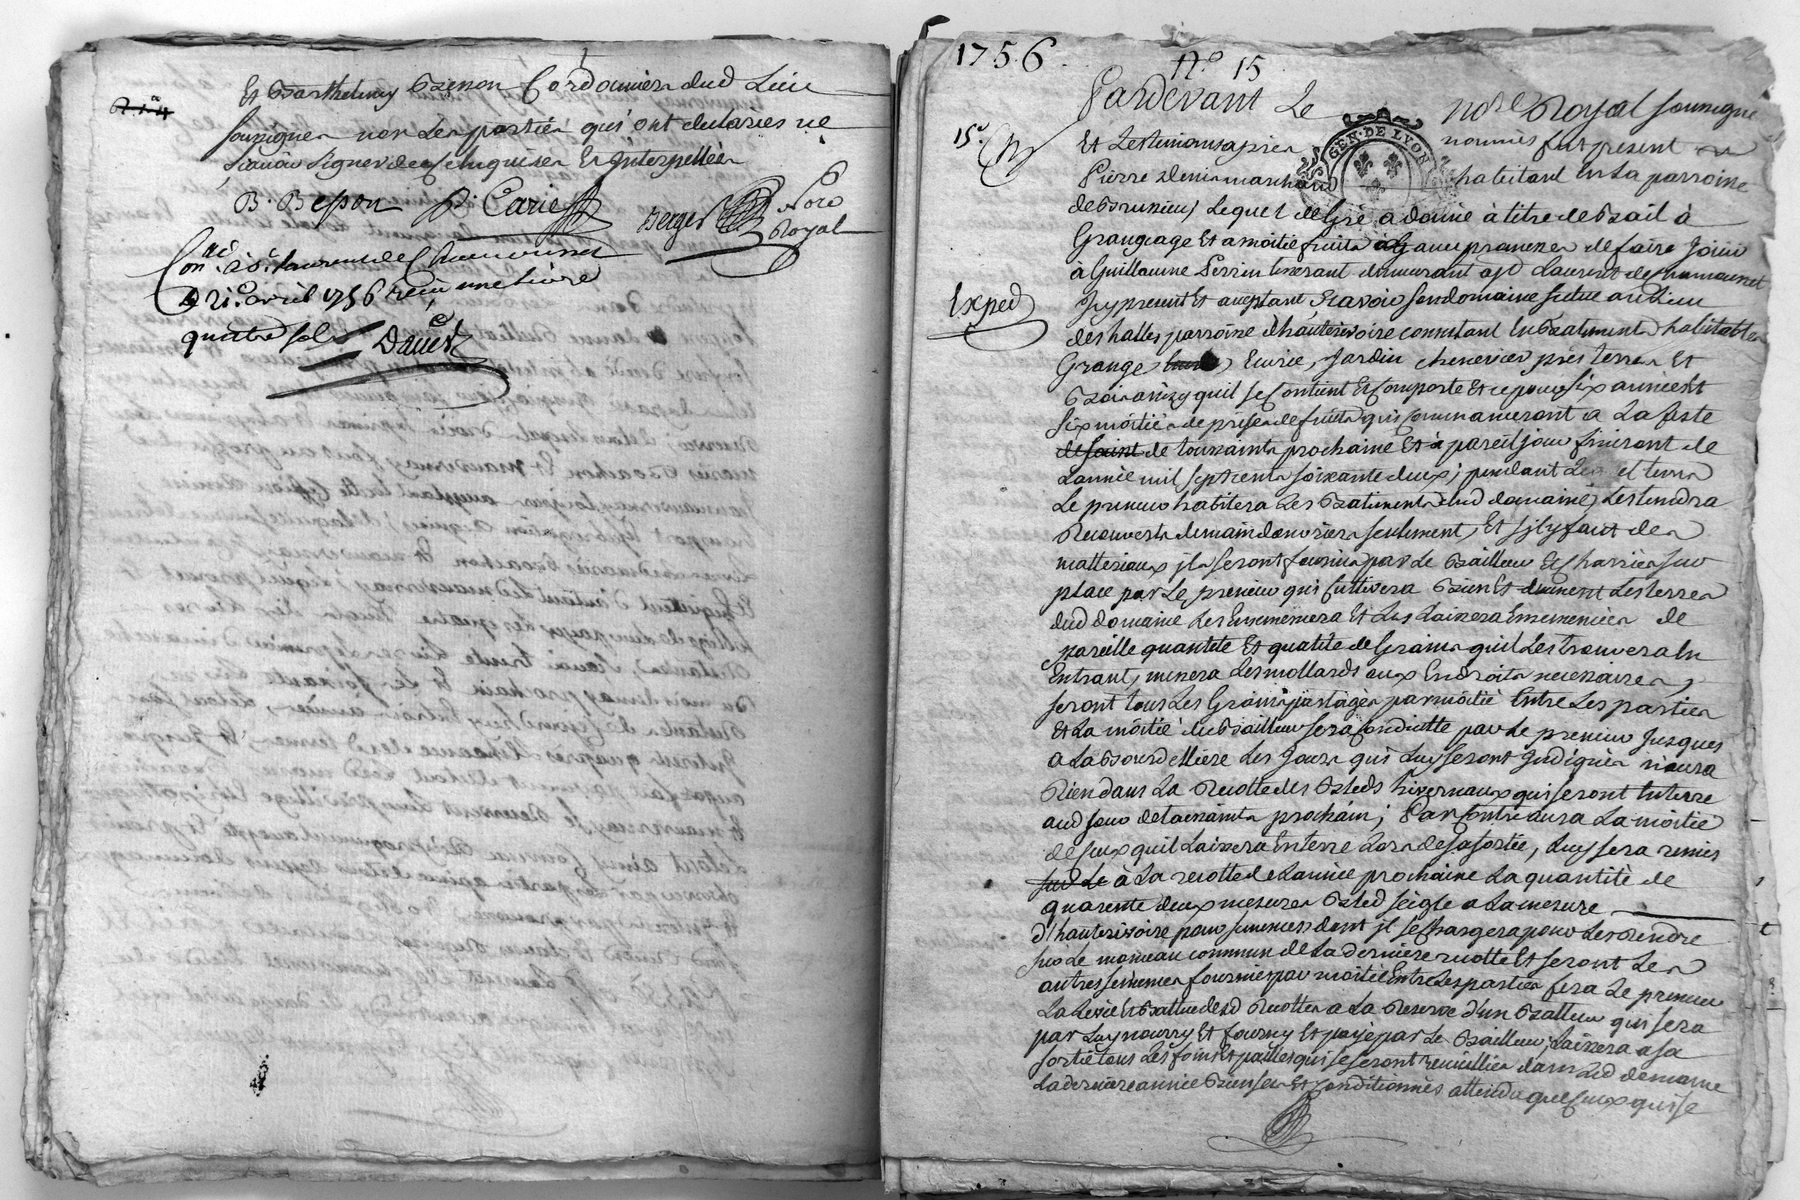 Et Barthelemy Besson Cordonnier dud Lieu
soussignes non les parties qui ont declarées ne
scavoir signer de ce Enquises Et Interpellées
B. Besson Carié Berger Noro Royal
Con.lé a St. Laurent de Chamousset
le 21e avril 1756 recu une livre
quatre sols Davet
1756. No 15
Pardevant Le nore Royal soussigné
15e Et Les temoins apres nommés fut present
GEN. DE LYON
Pierre marchand habitant En La parroisse
de Brunieu, Lequel de Gré a donné à titre de Bail à
Grangeage Et a moitié fruits avec promesse de faire Jouir
à Guillaume Perrin tisserant demeurant a St Laurent de Chamousset
Exped
Jcy present Et acceptant Scavoir son domaine situé au Lieu
des halles parroisse d'hauterivoire consistant En Batiments habitables
Grange, Ecurie, Jardin chenevier prés terres Et
Bois ainsy quil se Contient Et Comporte Et ce pour six années Et
six moitiés de prises de fruits qui Commanceront a La feste
de saint de toussaints prochaine Et à pareil jour finiront de
L'année mil sept cents soixante deux; pendant Le tems
Le preneur habitera Les Batiments dud domaine, Les tiendra
Recouverts de main d'ouvriers seulement, Et s'il y faut des
matteriaux jls seront fournis par Le Bailleur Et Charriés sur
place par Le preneur qui Cultivera Bien Et duement Les terres
dud domaine Les Ensemencera Et Les Laissera Ensemencées de
pareille quantité Et qualité de Grains quil Les trouvera En
Entrant, minera Les mollards aux Endroits necessaires,
seront tous Les Grains partagés par moitié Entre Les parties
Et La moitié du Bailleur sera Conduitte par Le preneur Jusques
a La Bourdelliere Les Jours qui Luy seront Jndiqués n'aura
Rien dans La Recolte des Bleds hivernaux qui seront En terre
aud jour de toussaints prochain; Par Contre aura La moitié
de Ceux quil Laissera En terre Lors de sa sortie, Luy sera remis
sur Le à La recolte de L'année prochaine La quantité de
quarente deux mesures Bled seigle a La mesure
d'hauterivoire pour semences dont jl se Chargera pour Les Rendre
sur Le monceau commun de La derniere recolte Et seront Les
autres semences fournies par moitié Entre Les parties fera Le preneur
La Levée Et Battue desd Recoltes a La Reserve d'un Batteur qui sera
par Luy nourry Et fourny Et payé par Le Bailleur, Laissera a sa
sortie tous Les foins Et pailles qui se seront recueillies dans Led domaine
La derniere année Bien secs Et Conditionnés attendu que Ceux qui se